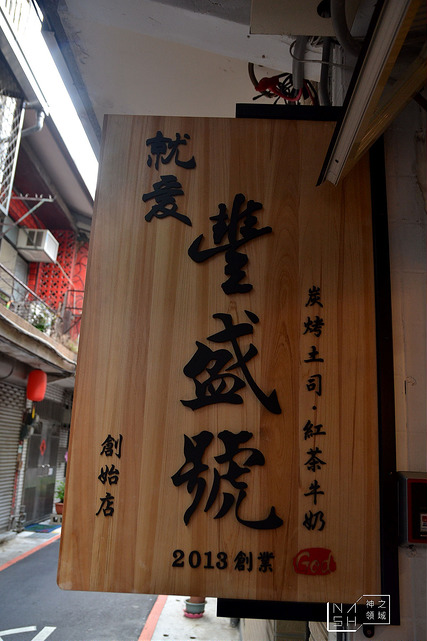 就愛
豐盛號
炭烤土司·紅茶牛奶
創始店
2013創業
God
NASH
神之領域